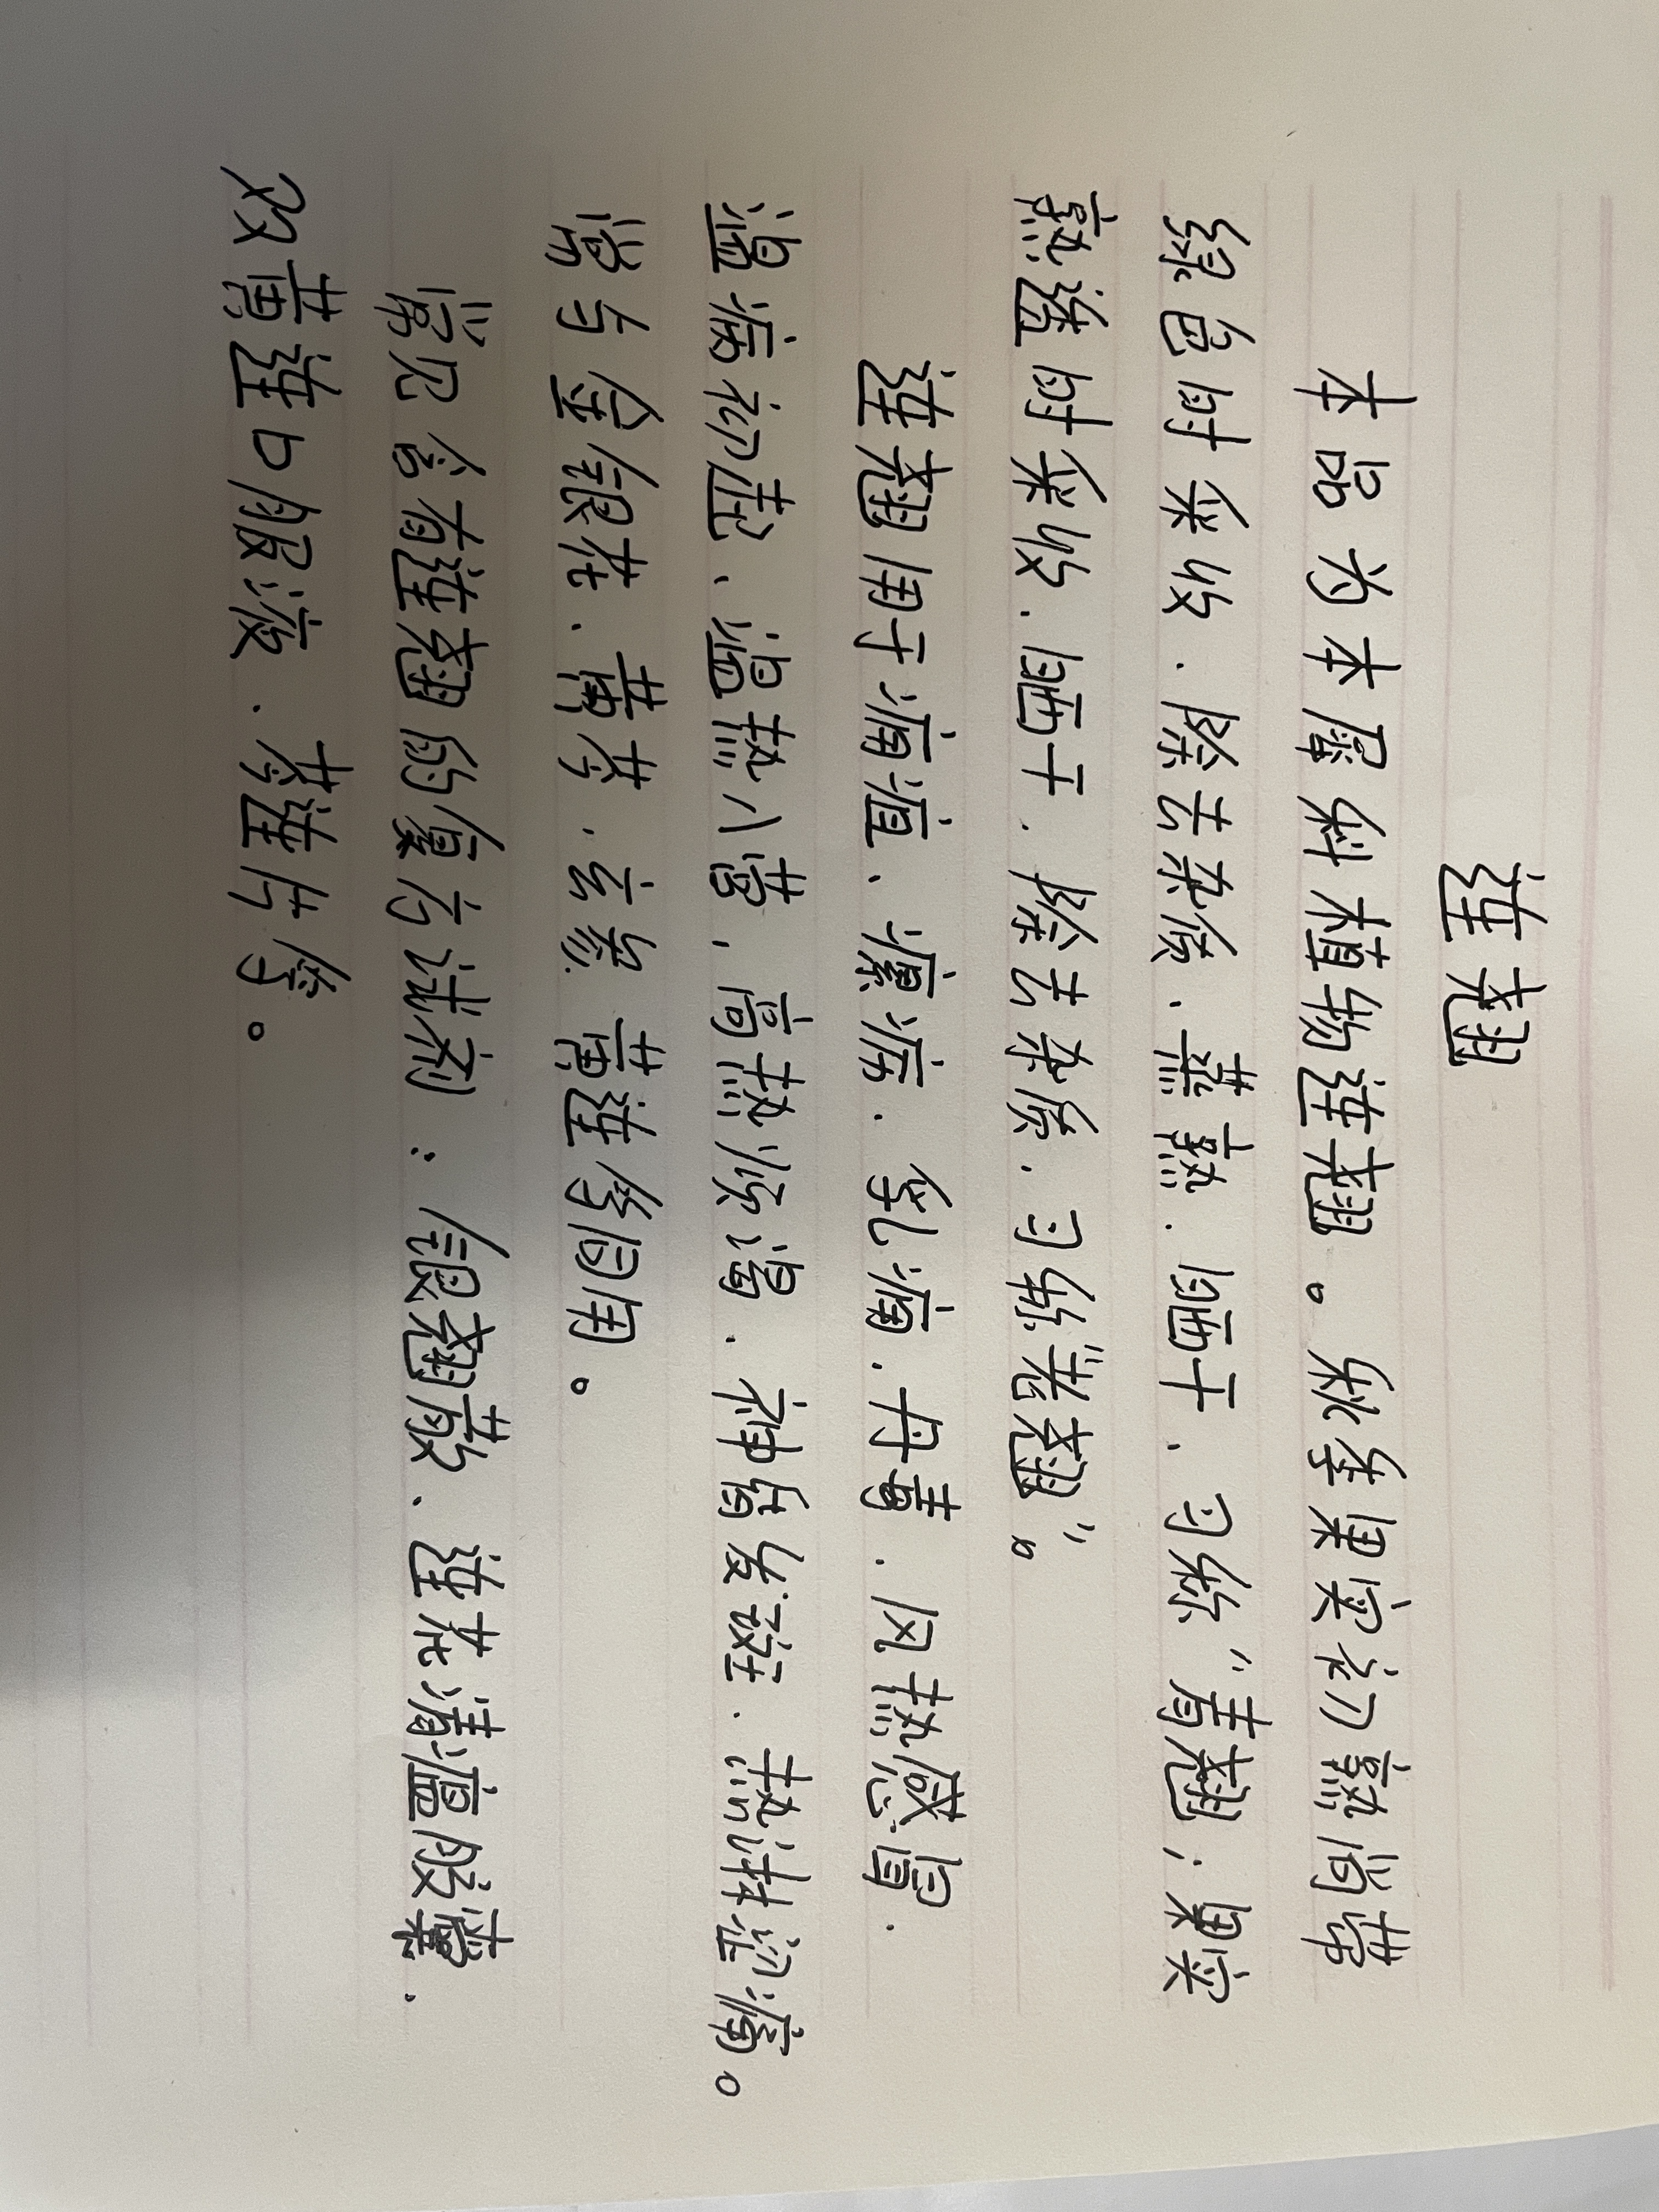 连翘
本品为木犀科植物连翘。秋季果实初熟尚带
绿色时采收、除去杂质、蒸熟、晒干、习称"青翘；果实
熟透时采收、晒干、除去杂质、习称"老翘"。
连翘用于痈疽、瘰疬、乳痈、丹毒、风热感冒、
温病初起、温热入营，高热烦渴、神昏发斑、热淋涩痛。
常与金银花、黄芩、玄参 黄连等同用。
常见含有连翘的复方试剂：银翘散、连花清瘟胶囊、
双黄连口服液、芩连片等。